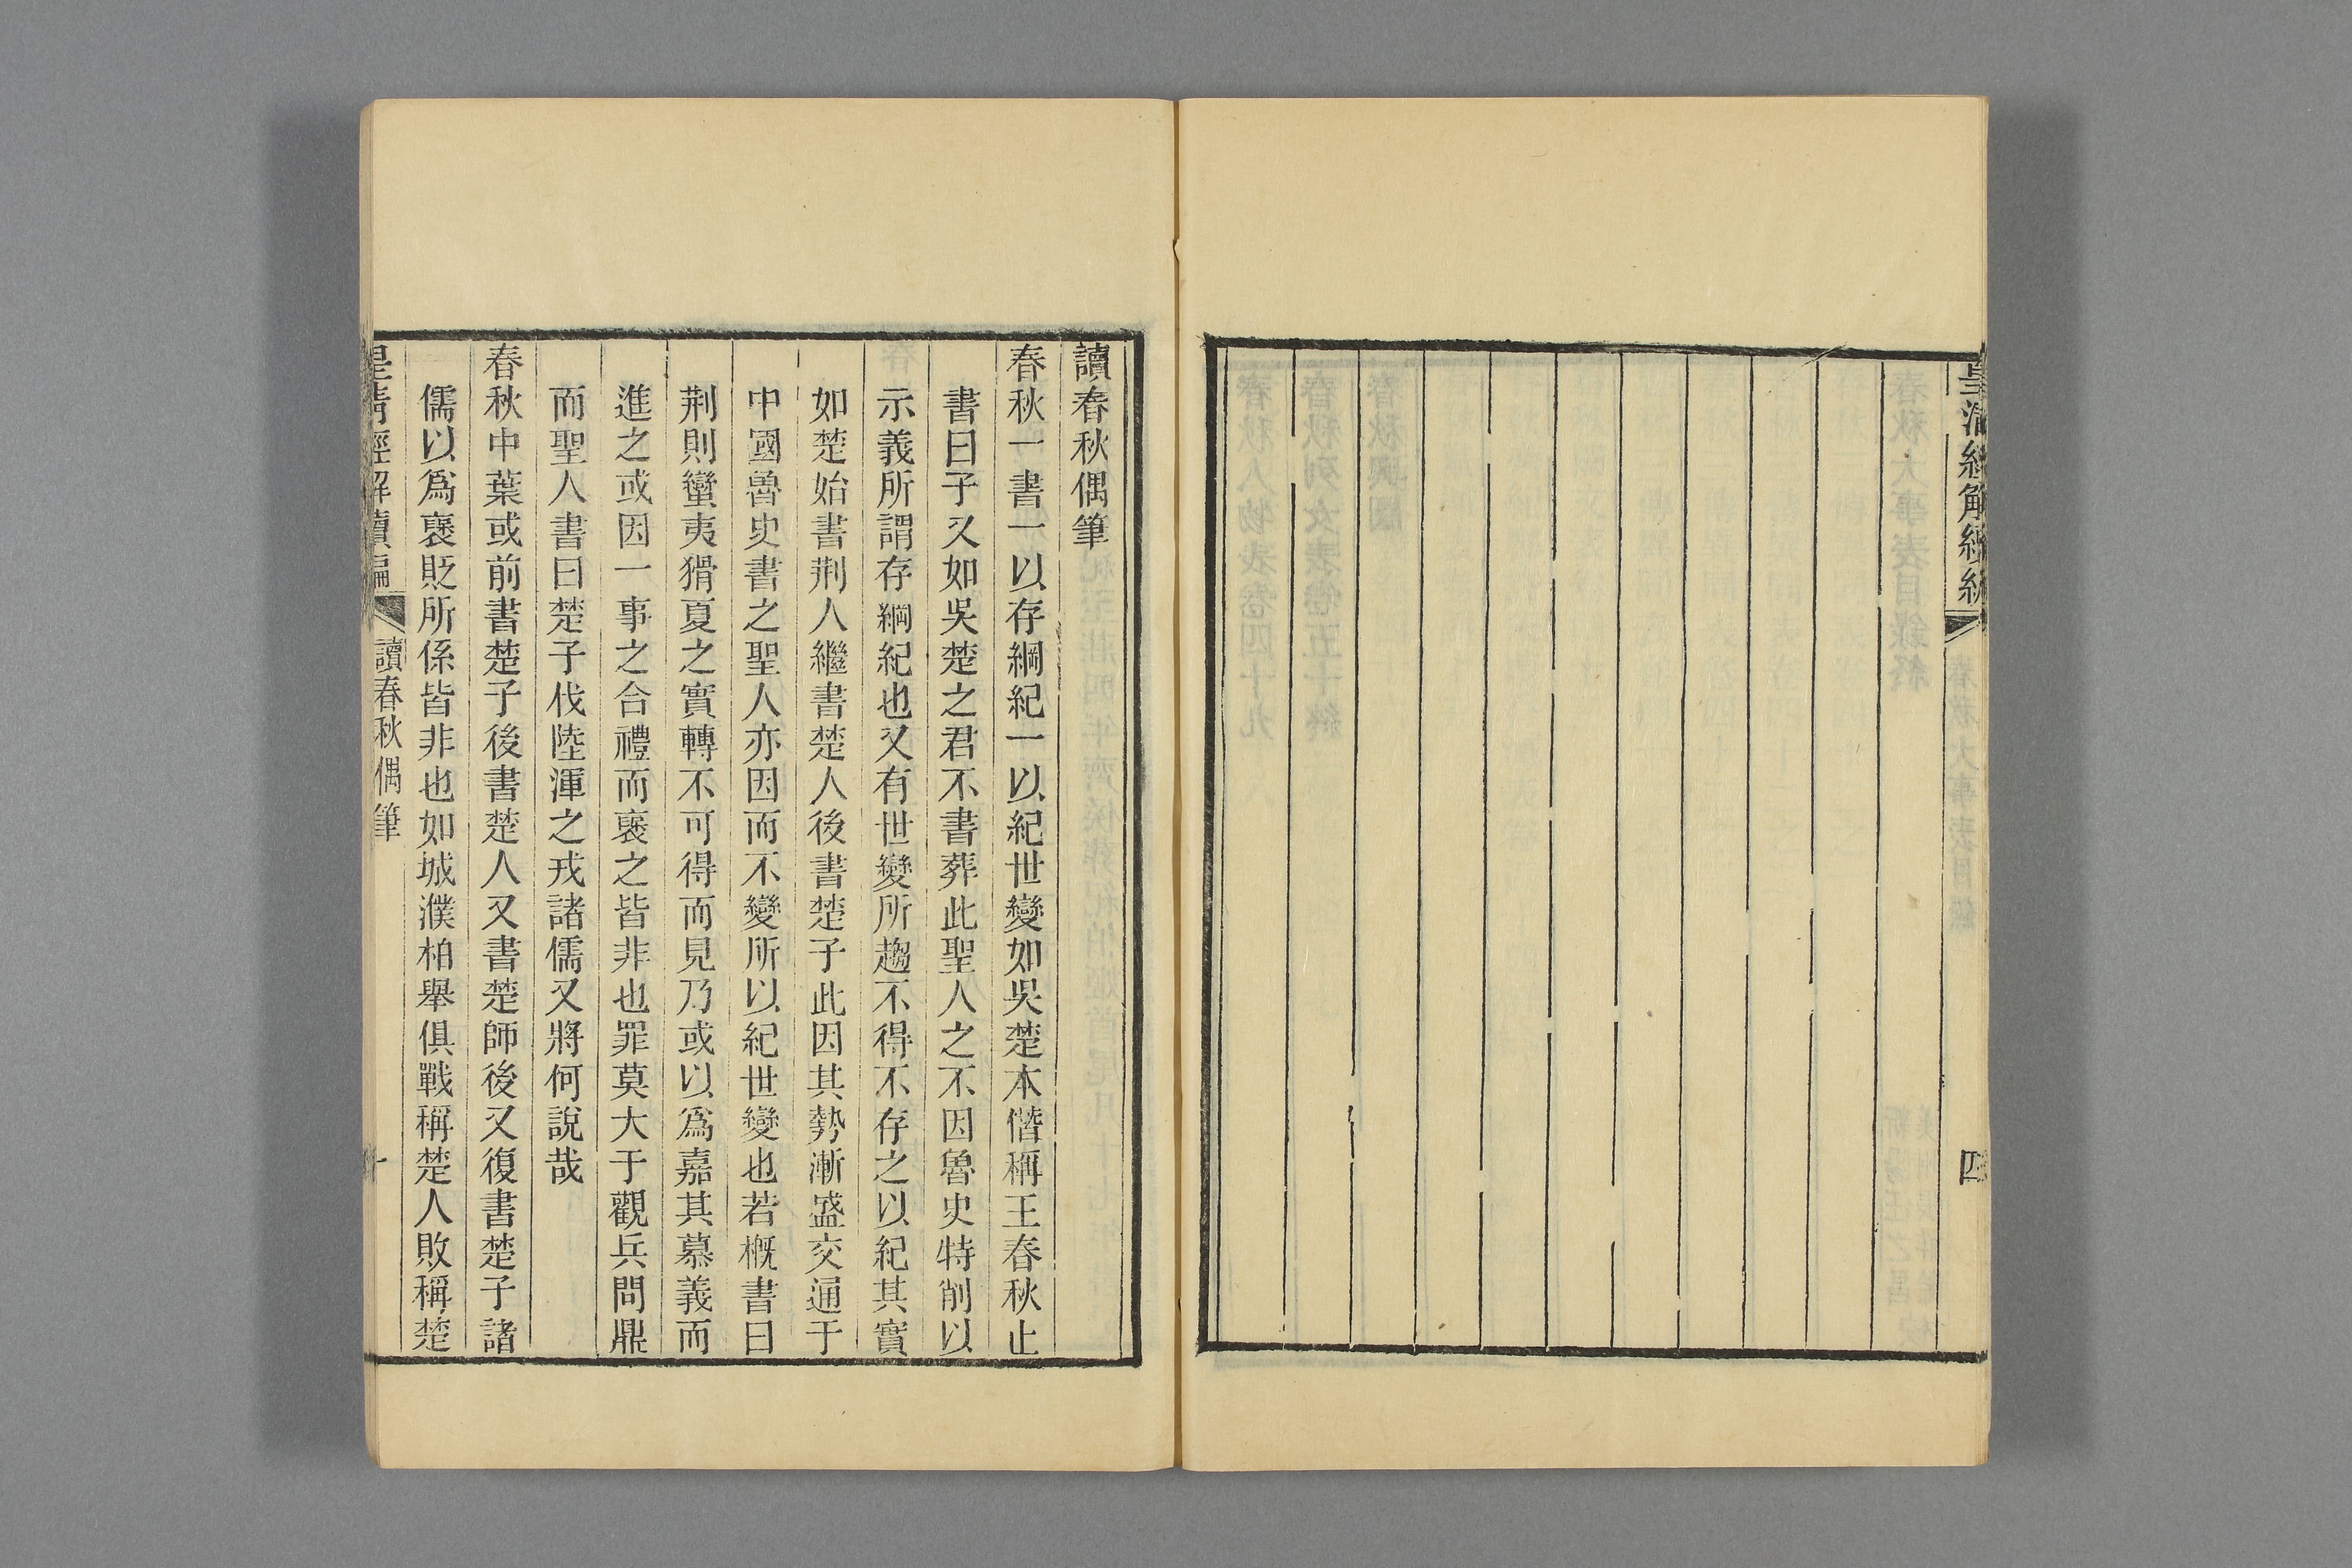 皇清經解續編
四
讀春秋偶筆
春秋一書一以存綱紀一以紀世變如吳楚本僭稱王春秋止
書曰子又如吳楚之君不書葬此聖人之不因魯史特削以
示義所謂存綱紀也又有世變所趨不得不存之以紀其實
如楚始書荆人繼書楚人後書楚子此因其勢漸盛交通于
中國魯史書之聖人亦因而不變所以紀世變也若槪書曰
荆則蠻夷猾夏之實轉不可得而見乃或以爲嘉其慕義而
進之或因一事之合禮而襃之皆非也罪莫大于觀兵問鼎
而聖人書曰楚子伐陸渾之戎諸儒又將何說哉
春秋中葉或前書楚子後書楚人又書楚師後又復書楚子諸
儒以爲襃貶所係皆非也如城濮柏舉俱戰稱楚人敗稱楚
皇清經解續編
讀春秋偶筆
一